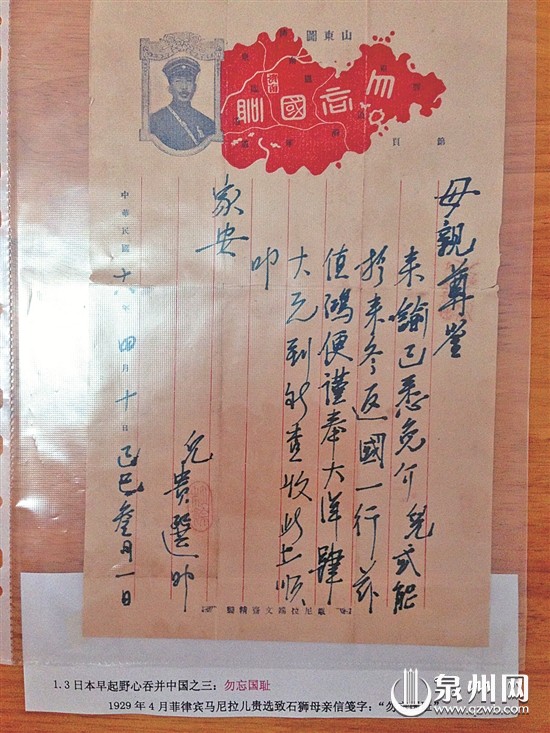 山東圖
勿忘國恥
母親尊鑒
来諭已悉免介兒或能
於来冬返國一行茲
值鴻便謹奉大洋肆
大元到祈查收此上順
叩
家安
兒貴選叩
中華民國十八年四月十日己巳叁月一日
1.3日本早起野心吞并中国之三：勿忘国耻
1929年4月菲律宾马尼拉儿贵选致石狮母亲信笺字：“勿
泉州网
www.qzwb.com